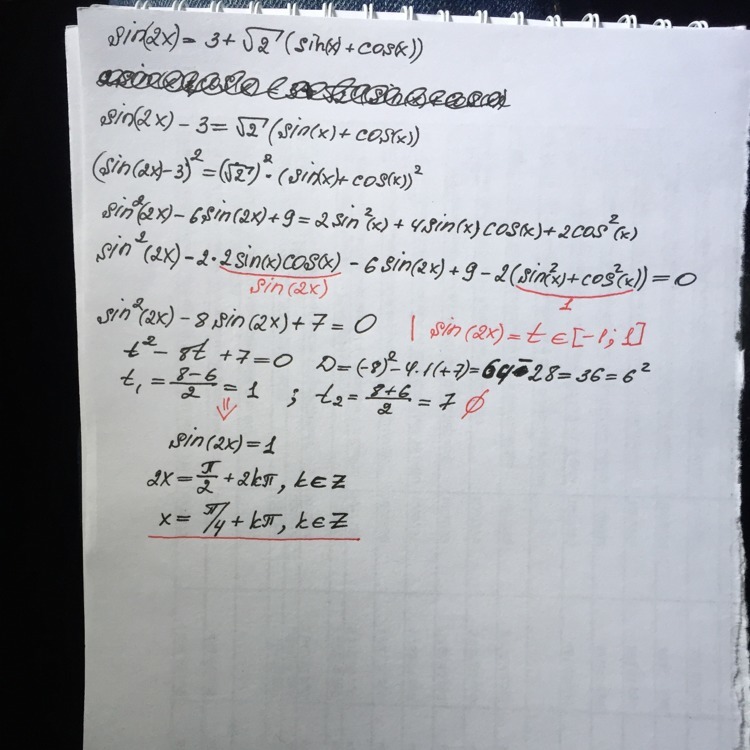 sin(2x) = 3 + √2 (sin(x) + cos(x))
sin(2x) - 3 = √2 (sin(x) + cos(x))
(sin(2x) - 3)² = (√2)² · (sin(x) + cos(x))²
sin²(2x) - 6 sin(2x) + 9 = 2 sin²(x) + 4 sin(x) cos(x) + 2cos²(x)
sin²(2x) - 2·2 sin(x) cos(x) - 6 sin(2x) + 9 - 2(sin²(x) + cos²(x)) = 0
sin(2x) 1
sin²(2x) - 8 sin(2x) + 7 = 0 | sin(2x) = t ∈ [-1; 1]
t² - 8t + 7 = 0 D = (-8)² - 4·1(+7) = 64 - 28 = 36 = 6²
t₁ = (8-6)/2 = 1 ; t₂ = (8+6)/2 = 7 ∅
⇓
sin(2x) = 1
2x = π/2 + 2kπ, k ∈ Z
x = π/4 + kπ, k ∈ Z